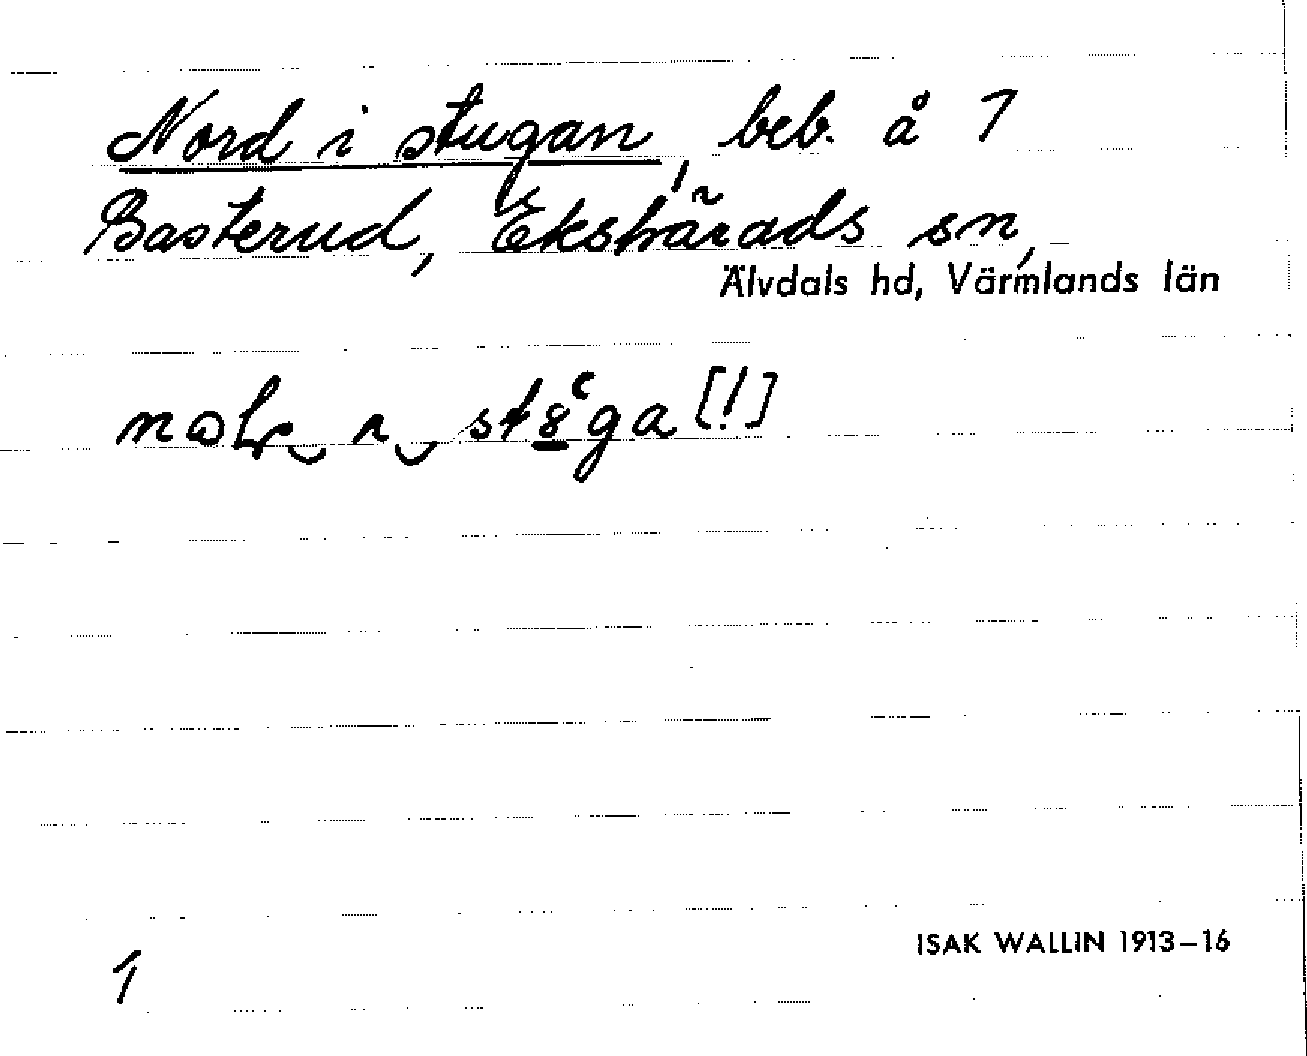 Nord i stugan, beb. å 1
Basterud, Ekshärads sn,
Älvdals hd, Värmlands län
[!]
1
ISAK WALLIN 1913–16